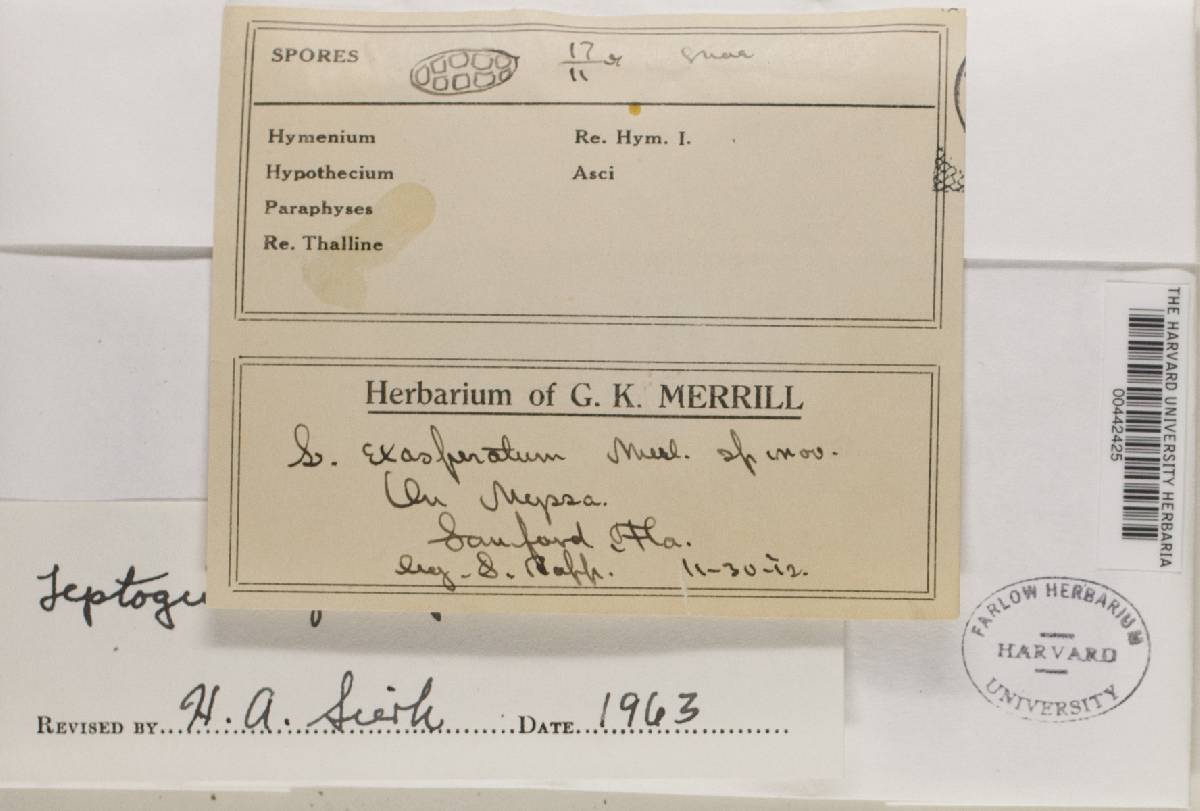 SPORES 17/11
Hymenium Re. Hym. I.
Hypothecium Asci
Paraphyses
Re. Thalline
Herbarium of G. K. MERRILL
L. exasperatum Merl. sp. nov.
On Nyssa.
Sanford, Fla.
Leg. S. Rapp. 11-30-12.
Leptogi
REVISED BY H. A. Sierk DATE 1963
THE HARVARD UNIVERSITY HERBARIA
00442425
FARLOW HERBARIUM
HARVARD
UNIVERSITY